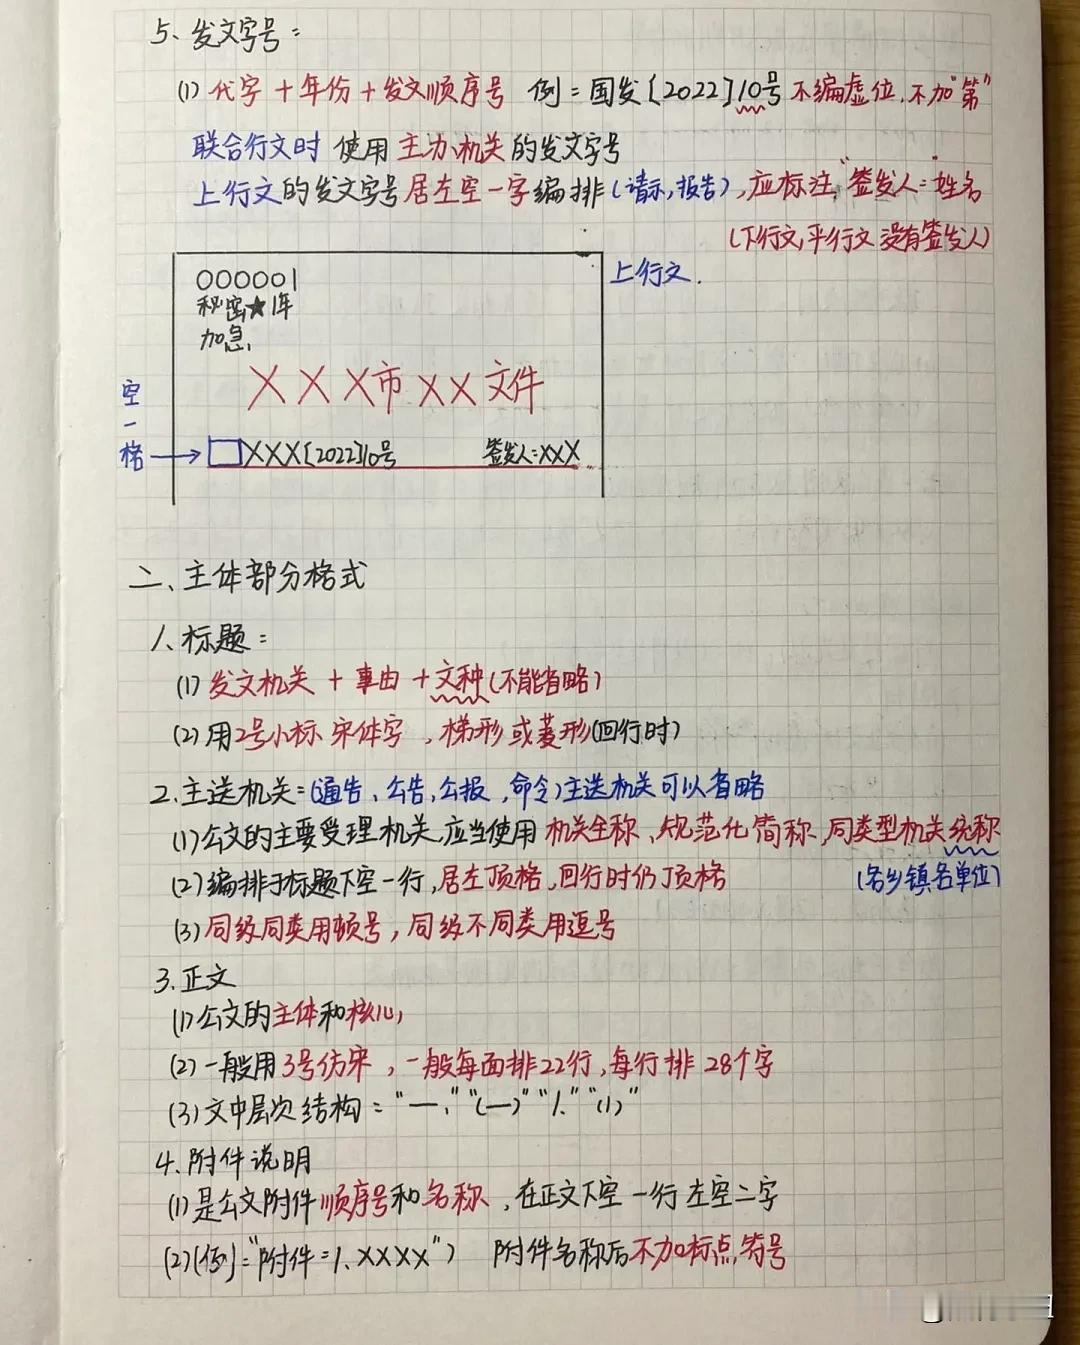 5、发文字号：
(1) 代字＋年份＋发文顺序号 例：国发〔2022〕10号 不编虚位，不加“第”
联合行文时 使用主办机关的发文字号
上行文的发文字号居左空一字编排（请示，报告），应标注“签发人：姓名
（下行文，平行文 没有签发人）
上行文.
000001
秘密★1年
加急
XXX市XX文件
空一格
XXX〔2022〕10号 签发人：XXX
二、主体部分格式
1、标题：
(1) 发文机关 ＋ 事由 ＋文种（不能省略）
(2) 用2号小标宋体字，梯形或菱形（回行时）
2.主送机关：（通告、公告，公报，命令）主送机关可以省略
(1) 公文的主要受理机关，应当使用机关全称、规范化简称，同类型机关统称
（各乡镇各单位）
(2) 编排于标题下空一行，居左顶格，回行时仍顶格
(3) 同级同类用顿号，同级不同类用逗号
3.正文
(1) 公文的主体和核心
(2) 一般用3号仿宋，一般每面排22行，每行排28个字
(3) 文中层次结构：“一、”“（一）”“1.”“（1）”
4.附件说明
(1) 是公文附件顺序号和名称，在正文下空一行左空二字
(2)（例）：“附件：1.XXXX”） 附件名称后不加标点符号